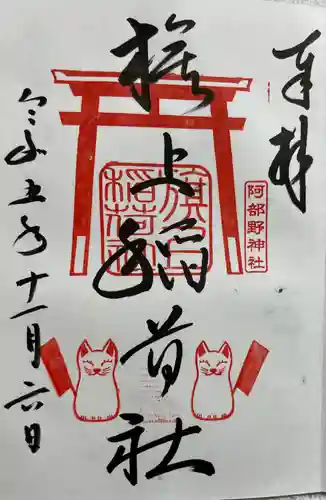 奉拝
旗上稲荷社
旗上稲荷
阿部野神社
令和五年十一月六日